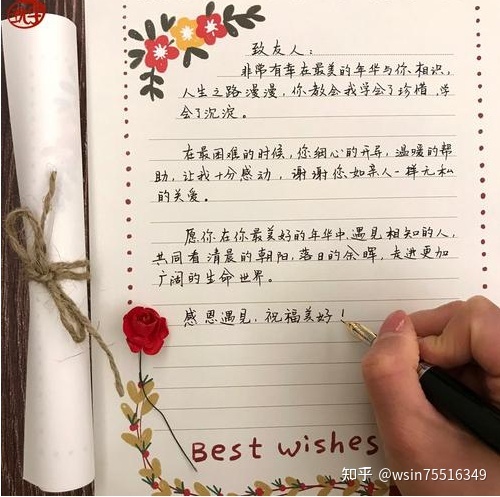 致友人：
非常有幸在最美的年华与你相识，
人生之路漫漫，你教会我学会了珍惜，学
会了沉淀。
在最困难的时候，您细心的开导，温暖的帮
助，让我十分感动，谢谢您如亲人一样无私
的关爱。
愿你在你最美好的年华中，遇见相知的人，
共同看清晨的朝阳，落日的余晖，走进更加
广阔的生命世界。
感恩遇见，祝福美好！
Best wishes
知乎 @wsin75516349